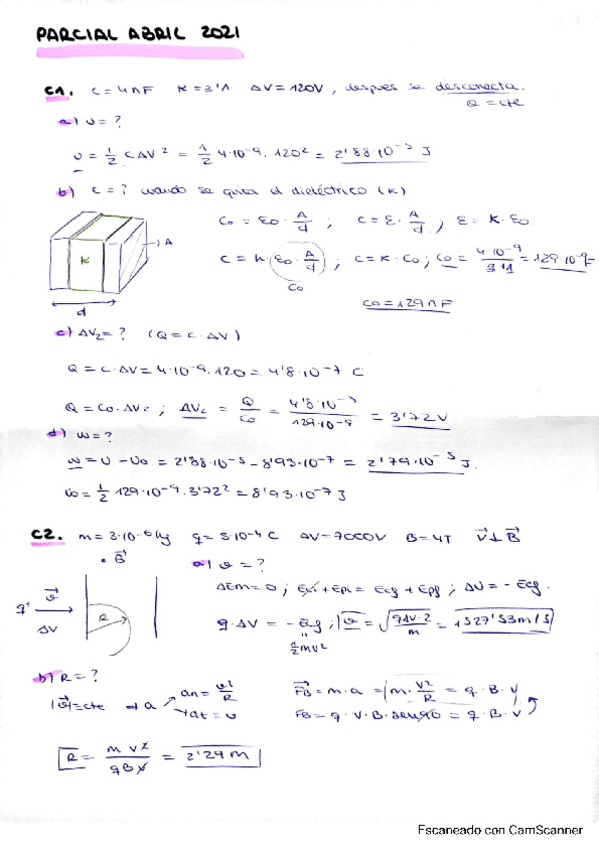 PARCIAL ABRIL 2021
C1. C=4nF K=3'1 ΔV=120V, después se desconecta.
Q=cte
a) U=?
U = 1/2 CΔV² = 1/2 4·10⁻⁹·120² = 2'88·10⁻⁵ J
b) C=? cuando se quita el dieléctrico (K)
C₀ = ε₀·A/d ; C = ε·A/d, ε = K·ε₀
C = K·(ε₀·A/d) ; C = K·C₀ ; C₀ = 4·10⁻⁹/3'1 = 129·10⁻⁹F
C₀
C₀=129nF
A
K
d
c) ΔV₂=? (Q=C·ΔV)
Q = C·ΔV = 4·10⁻⁹·120 = 4'8·10⁻⁷ C
Q = C₀·ΔV₂ ; ΔV₂ = Q/C₀ = 4'8·10⁻⁷/129·10⁻⁹ = 3'72V
d) W=?
W = U - U₀ = 2'88·10⁻⁵ - 8'93·10⁻⁷ = 2'79·10⁻⁵ J.
U₀ = 1/2 129·10⁻⁹·3'72² = 8'93·10⁻⁷ J
C2. ΔV=7000V B=4T V⃗⊥B⃗
· B⃗
a) v=?
ΔEm=0 ; Eci+Epi = Ecf+Epf ; ΔU = -Ecf.
q·ΔV = -Ecf ; |v⃗| = √(qΔV·2/m) = 1527'53m/s
1/2mv²
q⁺ v⃗
ΔV
R
b) R=?
|v⃗|=cte → a an = v²/R
at = 0
F⃗B = m·a = |m·v²/R = q·B·v
FB = q·V·B·sen90 = q·B·V
R = m v²/qBv = 2'29m
Escaneado con CamScanner